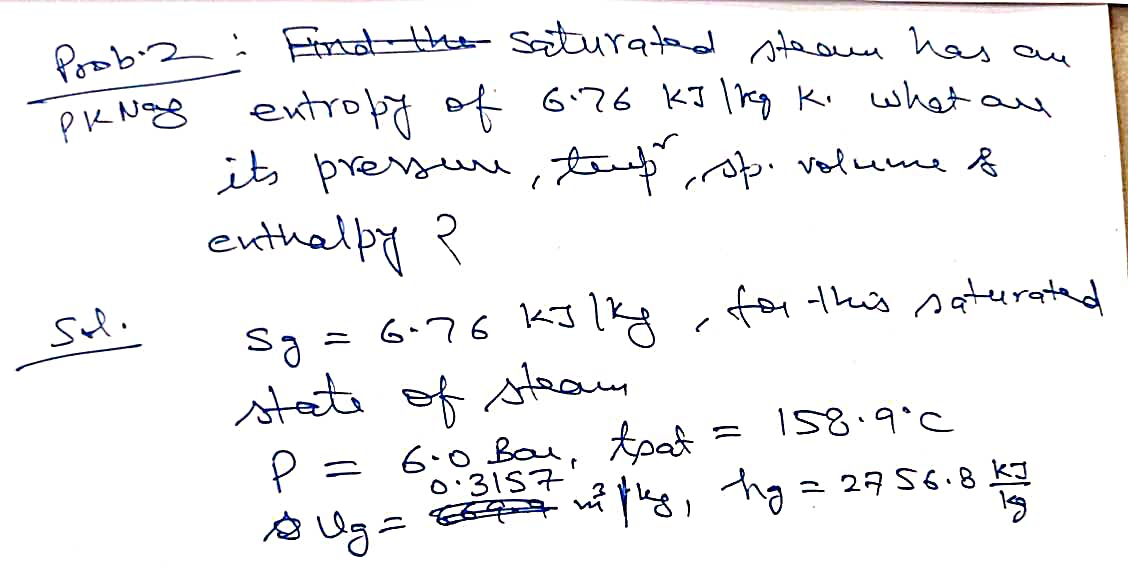 Prob.2 : Find the saturated steam has an
PK Nag entropy of 6.76 KJ/kg K. what are
its pressure, tempr, sp. volume &
enthalpy ?
Sol. sg = 6.76 KJ/kg, for this saturated
state of steam
P = 6.0 Bar, tsat = 158.9°C
vg = 0.3157 m³/kg, hg = 2756.8 KJ/kg